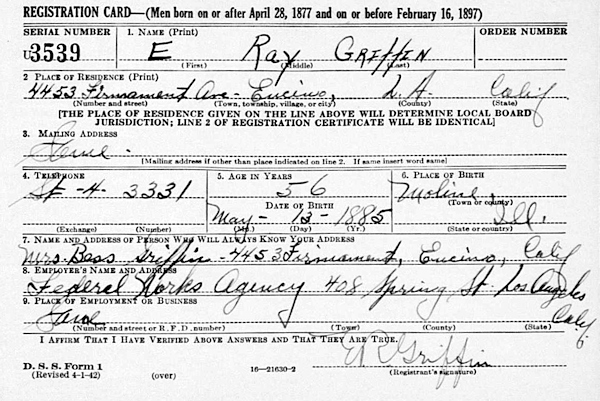 REGISTRATION CARD—(Men born on or after April 28, 1877 and on or before February 16, 1897)
SERIAL NUMBER 1. NAME (Print) ORDER NUMBER
U3539 E Ray GRIFFIN
(First) (Middle) (Last)
2 PLACE OF RESIDENCE (Print)
4453 Firmament Ave- Encino, L.A. Calif
(Number and street) (Town, township, village, or city) (County) (State)
[THE PLACE OF RESIDENCE GIVEN ON THE LINE ABOVE WILL DETERMINE LOCAL BOARD
JURISDICTION; LINE 2 OF REGISTRATION CERTIFICATE WILL BE IDENTICAL]
3. MAILING ADDRESS
Same -
[Mailing address if other than place indicated on line 2. If same insert word same]
4. TELEPHONE 5. AGE IN YEARS 6. PLACE OF BIRTH
St-4-3331 56 Moline,
DATE OF BIRTH (Town or county)
May-13-1885 Ill.
(Exchange) (Number) (Mo.) (Day) (Yr.) (State or country)
7. NAME AND ADDRESS OF PERSON WHO WILL ALWAYS KNOW YOUR ADDRESS
Mrs. Bess Griffin - 4453 Firmament, Encino, Calif
8. EMPLOYER'S NAME AND ADDRESS
Federal Works Agency 408 Spring St. Los Angeles
9. PLACE OF EMPLOYMENT OR BUSINESS Calif
Same
(Number and street or R. F. D. number) (Town) (County) (State)
I AFFIRM THAT I HAVE VERIFIED ABOVE ANSWERS AND THAT THEY ARE TRUE.
D. S. S. Form 1 E R Griffin
(Revised 4-1-42) (over) 16—21630-2 (Registrant's signature)